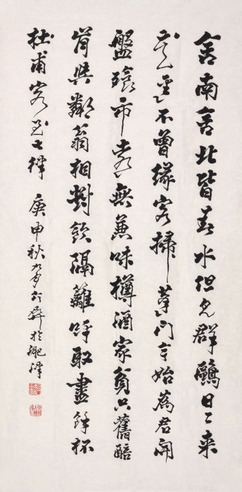 舍南舍北皆春水但見群鷗日日来
花徑不曾緣客掃蓬門今始為君開
盤飧市遠無兼味樽酒家貧只舊醅
肯與鄰翁相對飲隔籬呼取盡餘杯
杜甫客至七律 庚申秋